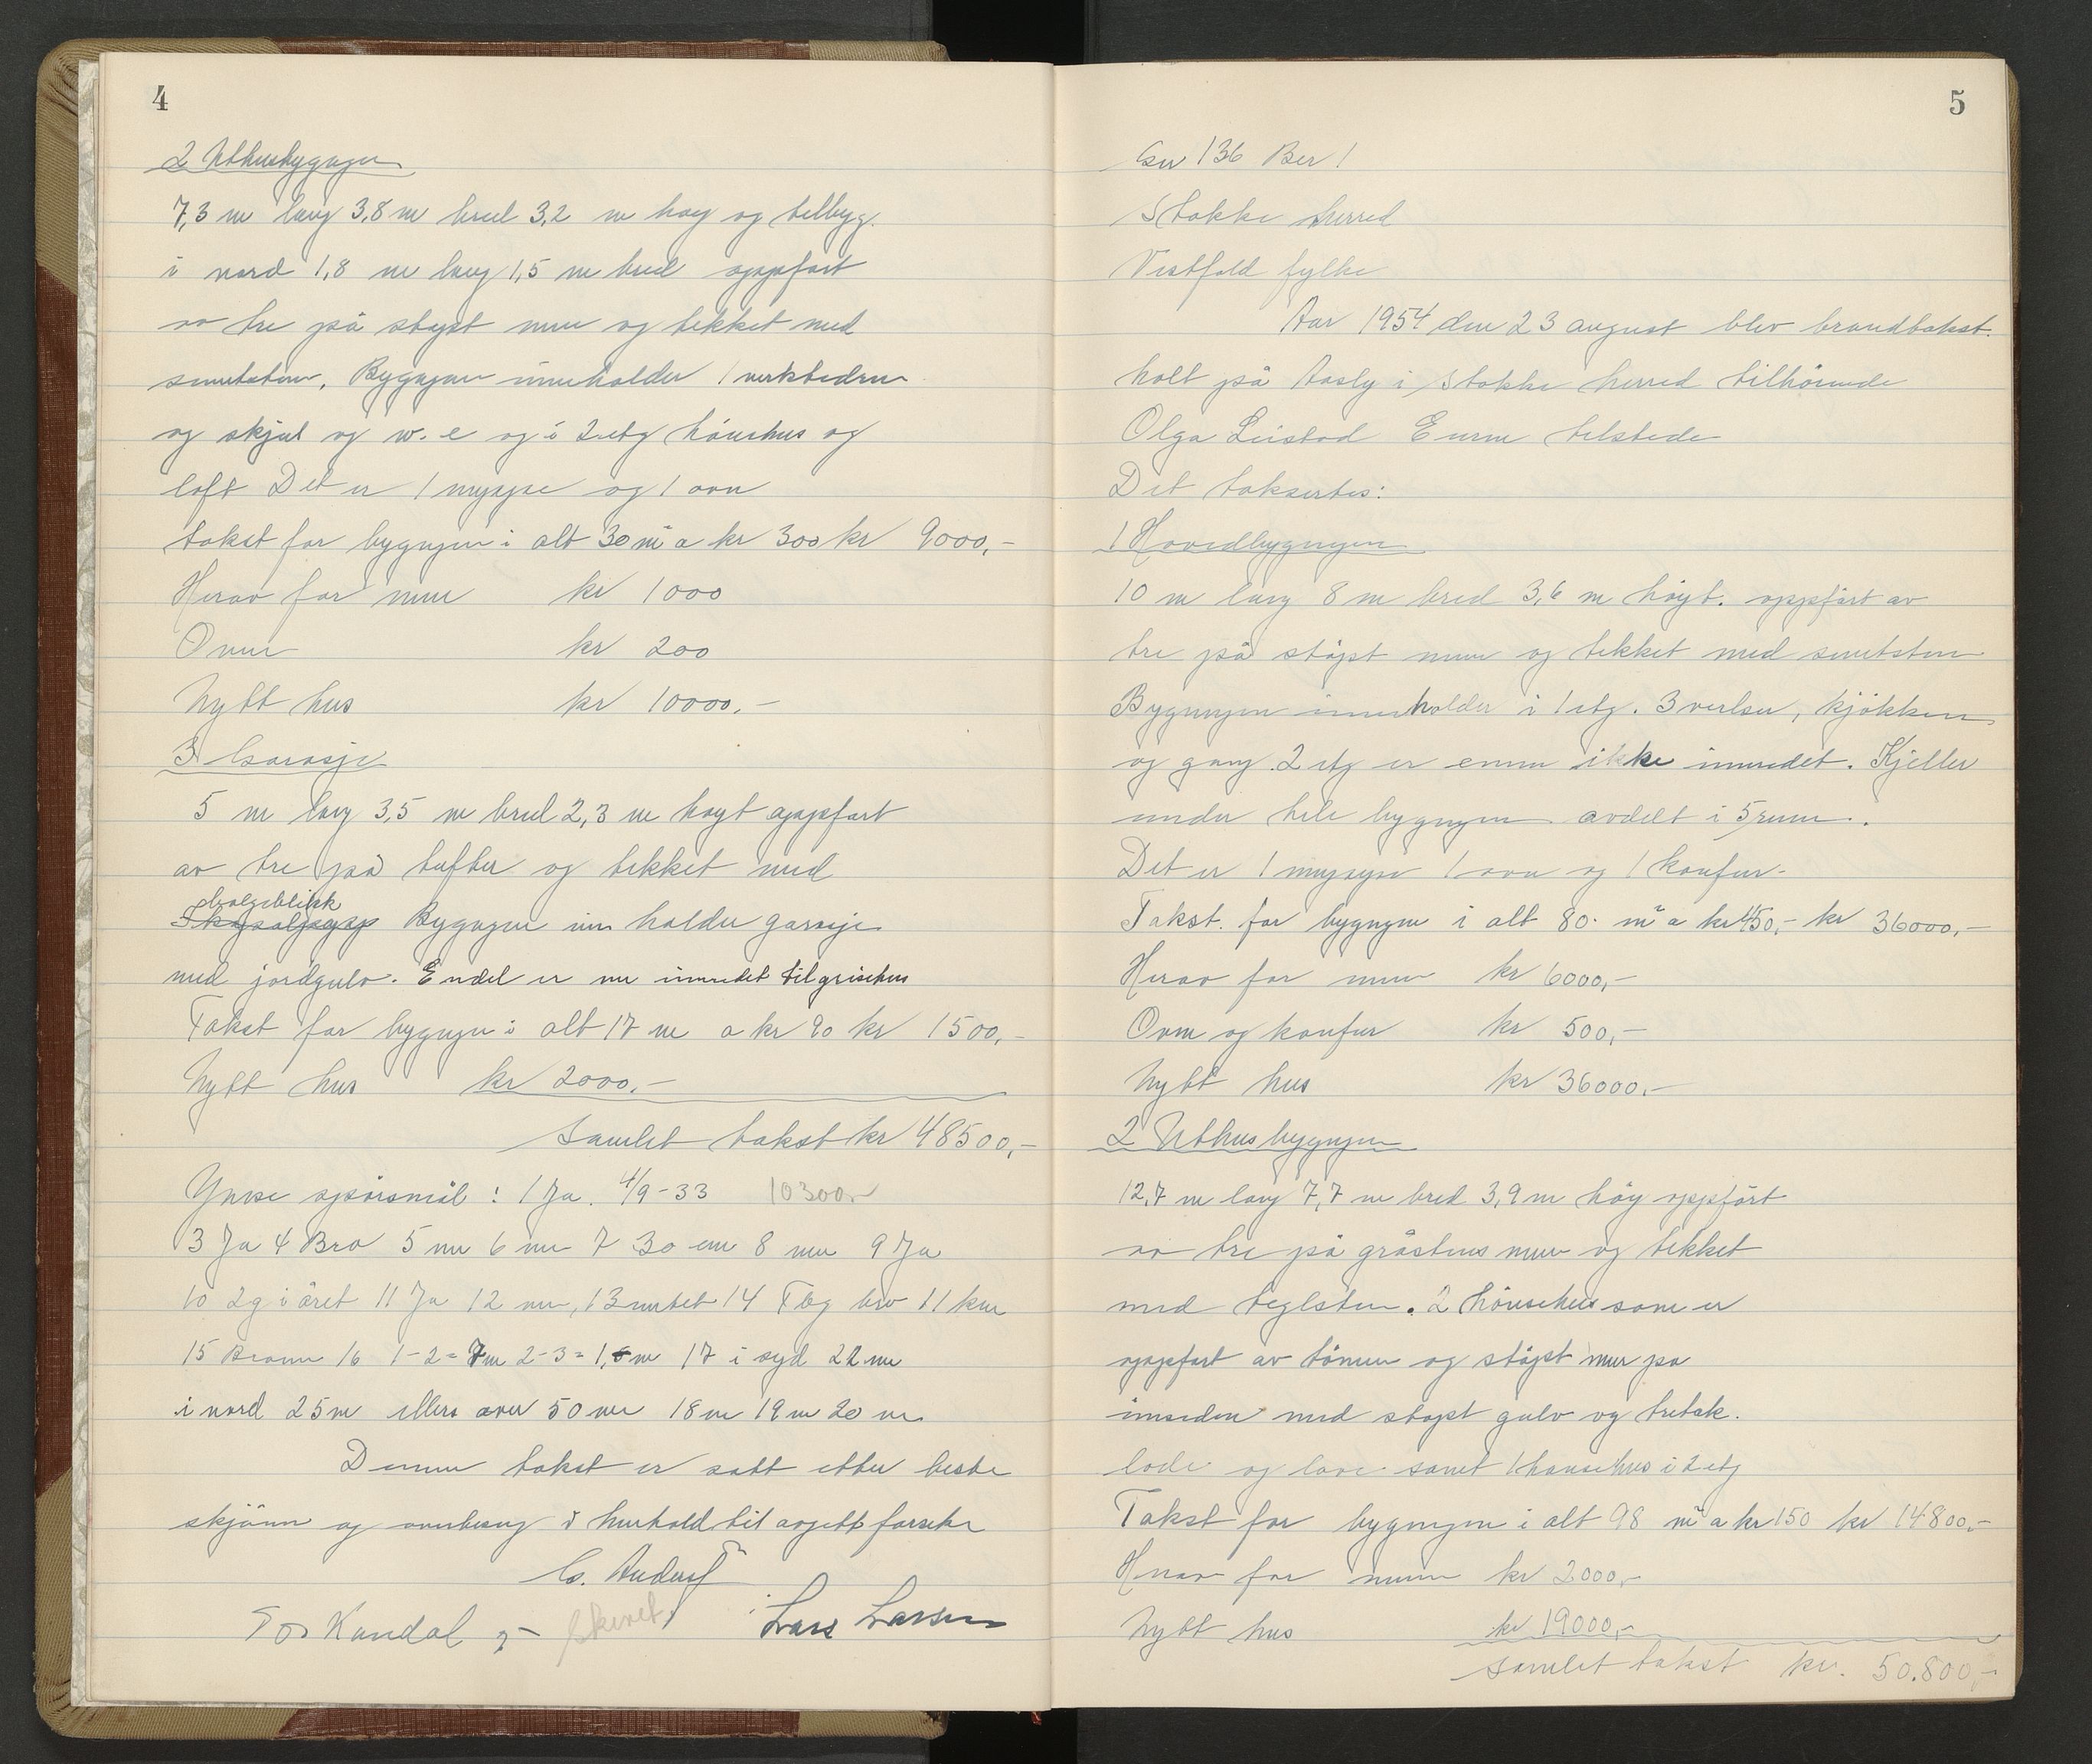 4
2 Uthusbygngen
7,3 m lang 3,8 m bred 3,2 m høy og tilbyg.
i nord 1,8 m lang 1,5 m bred oppført
av tre på støpt mur og tekket med
sementsten. Bygngen inneholder 1 verksted
og skjul og w.c og i 2 etg hönsehus og
loft Det er 1 mpipe og 1 ovn
takst for bygngen i alt 30 m² a kr 300 kr 9000,-
Herav for mur kr 1000
Ovn kr 200
Nytt hus kr 10000,-
3 Garasje
5 m lang 3,5 m bred 2,3 m høyt oppført
av tre på tufter og tekket med
bølgeblikk
Bygngen inneholder garasje
med jordgulv. Endel er nu innredet til grisehus
Takst for bygngen i alt 17 m a kr 90 kr 1500,-
Nytt hus kr 2000,-
Samlet takst kr 48500,-
Ymse spörsmål: 1 Ja. 4/9-33 10300,-
3 Ja 4 Bra 5 nei 6 nei 7 30 cm 8 nei 9 Ja
10 2 g i året 11 Ja 12 nei, 13 nettet 14 Tbg brv 11 km
15 Brønn 16 1-2= 7m 2-3= 1,5m 17 i syd 22 m
i nord 25 m ellers over 50 m 18 n 19 n 20 n
Denne takst er satt etter beste
skjönn og overbevisng i henhold til avgitt forsikr
G. Anders
Tor Kandal Lars Larsen
5
Gnr 136 Bnr 1
Stokke herred
Vestfold fylke
Aar 1954 den 23 august blev brandtakst.
holt på Aasly i Stokke herred tilhörende
Olga Leistad Eieren tilstede
Det taksertes:
1 Hovedbygngen
10 m lang 8 m bred 3,6 m höyt. oppfört av
tre på stöpt mur og tekket med sementsten
Bygngen inneholder i 1 etg. 3 verelser, kjökken
og gang. 2 etg er ennu ikke innredet. Kjeller
under hele bygngen avdelt i 5 rum.
Det er 1 mpipe 1 ovn og 1 komfur.
Takst. for bygngen i alt 80 m² a kr 450,- kr 36000,-
Herav for mur kr 6000,-
Ovn og komfur kr 500,-
Nytt hus kr 36000,-
2 Uthusbygngen
12,7 m lang 7,7 m bred 3,9 m höy oppfört
av tre på gråstens mur og tekket
med teglsten. 2 hönsehus som er
oppført av tömmer og stöpt mur på
innsiden med støpt gulv og tretak.
lade og låve samt 1 hønsehus i 2 etg
Takst for bygngen i alt 98 m² a kr 150 kr 14800,-
Herav for muren kr 2000,-
Nytt hus kr 19000,-
samlet takst kr. 50.800,-